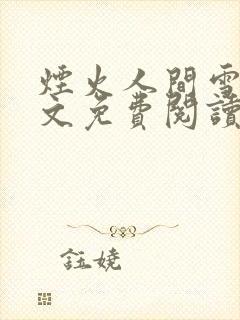 煙火人間雪
文免費閱讀
註嬈